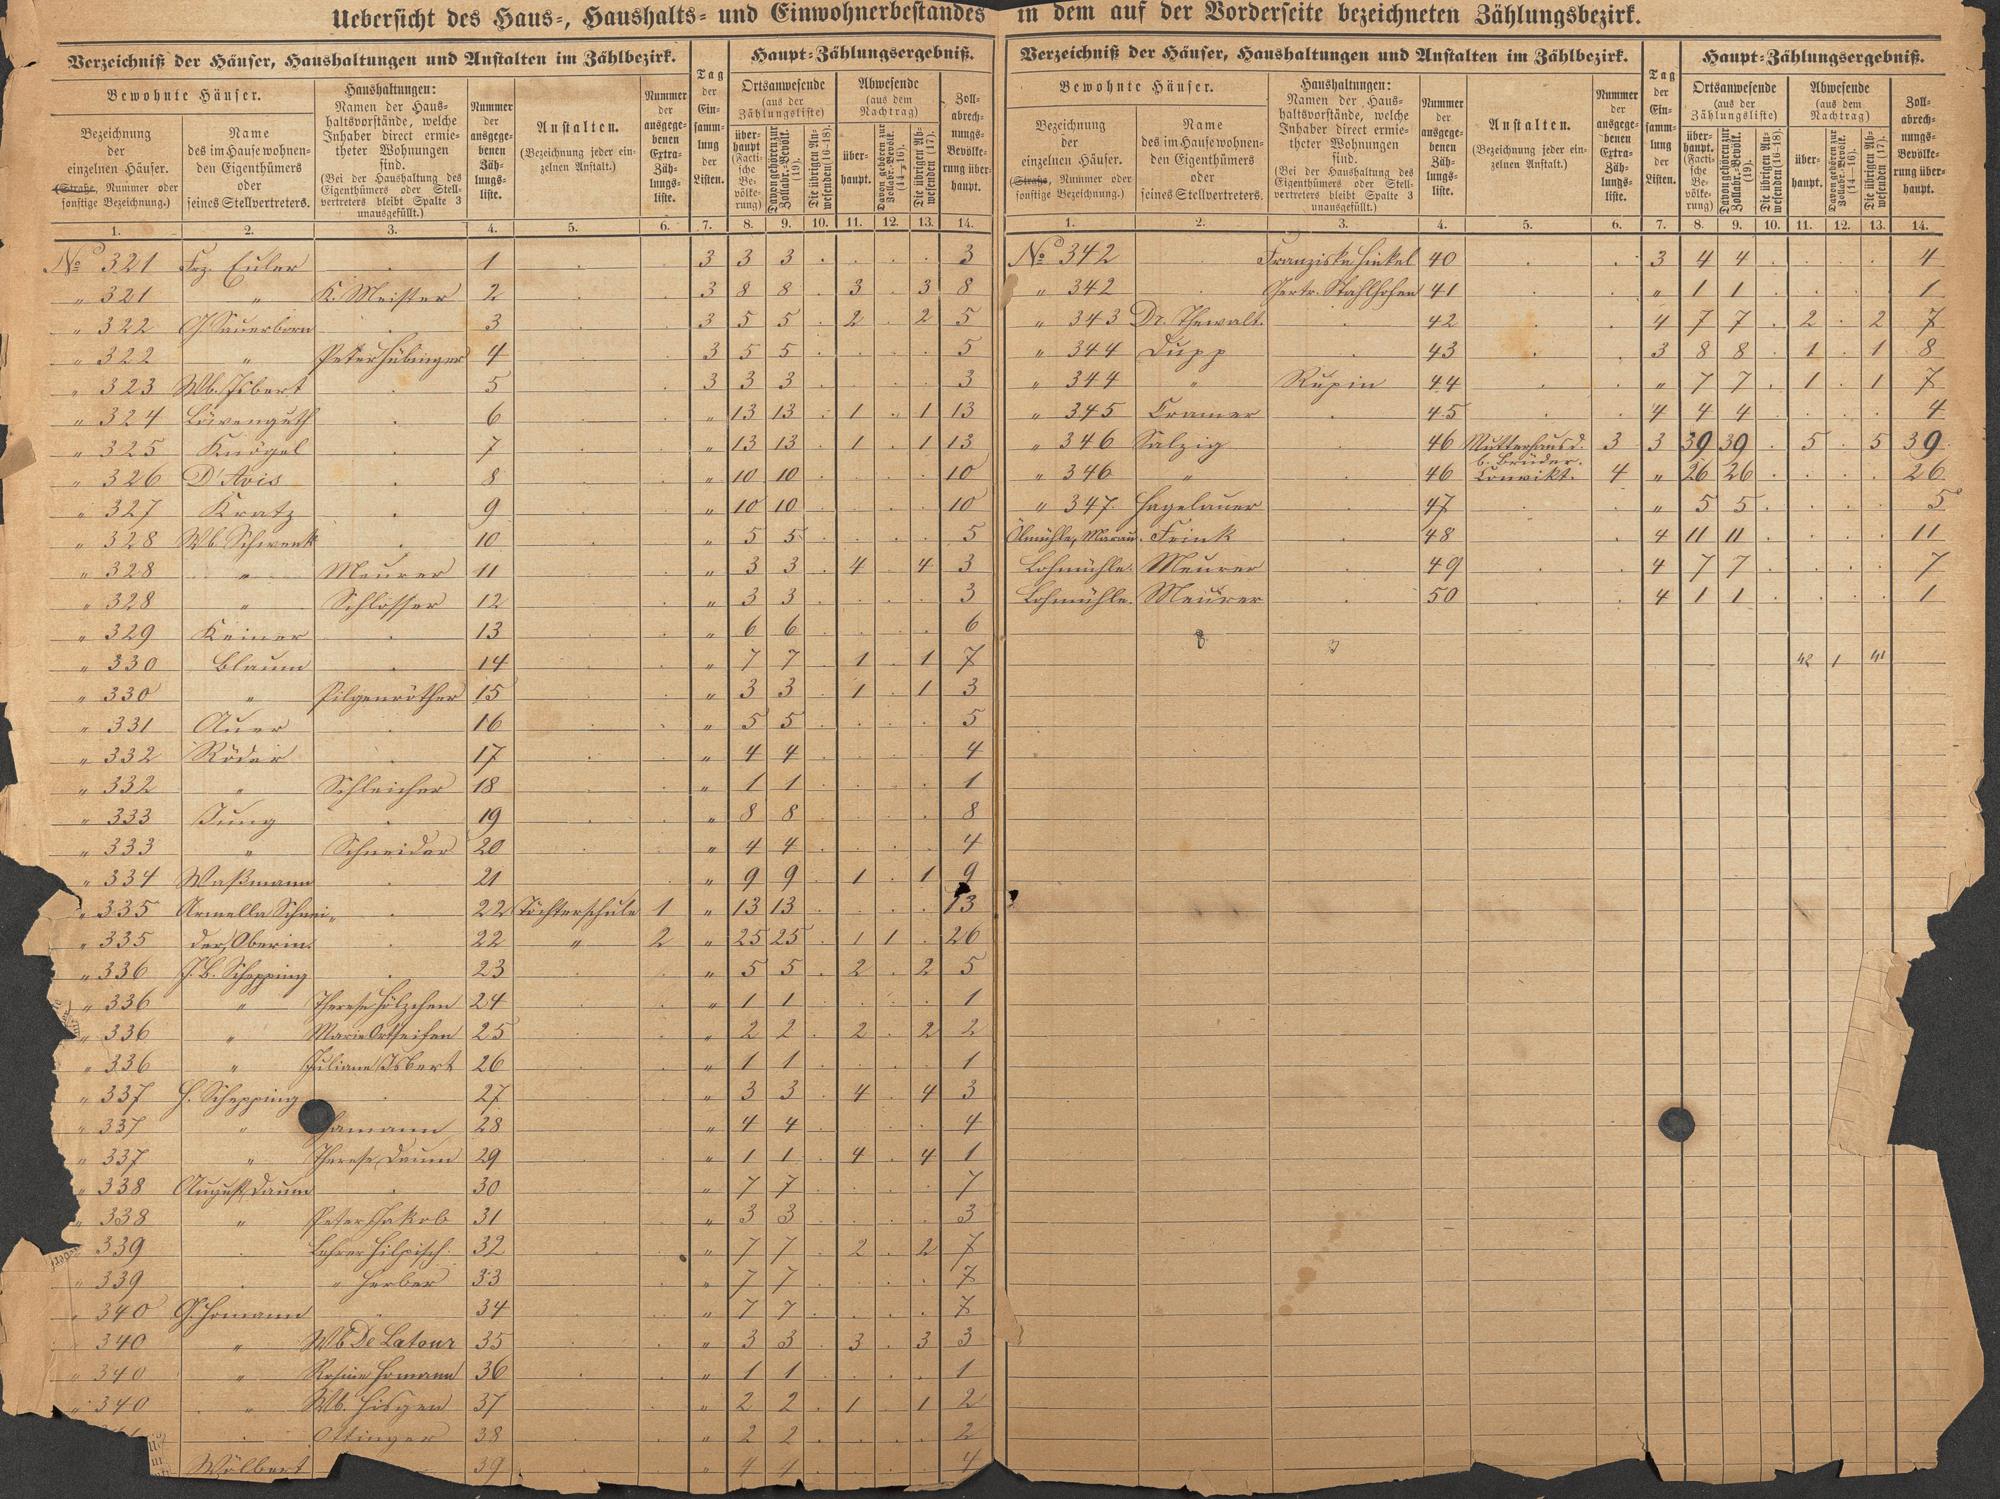 Uebersicht des Haus-, Haushalts- und Einwohnerbestandes in dem auf der Vorderseite bezeichneten Zählungsbezirk.
Verzeichniß der Häuser, Haushaltungen und Anstalten im Zählbezirk.
Tag der Einsammlung der Listen.
Haupt-Zählungsergebniß.
Bewohnte Häuser.
Bezeichnung der einzelnen Häuser. (Straße, Nummer oder sonstige Bezeichnung.)
Name des im Hause wohnenden Eigenthümers oder seines Stellvertreters.
Haushaltungen: Namen der Haushaltsvorstände, welche Inhaber direct ermietheter Wohnungen sind. (Bei der Haushaltung des Eigenthümers oder Stellvertreters bleibt Spalte 3 unausgefüllt.)
Nummer der ausgegebenen Zählungsliste.
Anstalten. (Bezeichnung jeder einzelnen Anstalt.)
Nummer der ausgegebenen Extra-Zählungsliste.
Ortsanwesende (aus der Zählungsliste)
überhaupt (Factische Bevölkerung)
Davon gehören zur Zollabr.-Bevölk. (19).
Die übrigen Anwesenden (16–18).
Abwesende (aus dem Nachtrag)
überhaupt.
Davon gehören zur Zollabr.-Bevölk. (14–16).
Die übrigen Abwesenden (17).
Zollabrechnungs-Bevölkerung überhaupt.
1. 2. 3. 4. 5. 6. 7. 8. 9. 10. 11. 12. 13. 14.
No 321 Frz. Euler 1 3 3 3 3
" 321 " K. Meister 2 3 8 8 3 3 8
" 322 J Sauerborn 3 3 5 5 2 2 5
" 322 " Peter Hübinger 4 3 5 5 5
" 323 Wb. Isbert 5 3 3 3 3
" 324 Löwenguth 6 " 13 13 1 1 13
" 325 Knögel 7 " 13 13 1 1 13
" 326 D'Avis 8 " 10 10 10
" 327 Kratz 9 " 10 10 10
" 328 Wb. Schwenk 10 " 5 5 5
" 328 " Meurer 11 " 3 3 4 4 3
" 328 " Schlosser 12 " 3 3 3
" 329 Keiner 13 " 6 6 6
" 330 Blaum 14 " 7 7 1 1 7
" 330 " Pilgenröther 15 " 3 3 1 1 3
" 331 Auer 16 " 5 5 5
" 332 Röder 17 " 4 4 4
" 332 " Schleicher 18 " 1 1 1
" 333 Jung 19 " 8 8 8
" 333 " Schneider 20 " 4 4 4
" 334 Waßmann 21 " 9 9 1 1 9
" 335 Armella Schnei- 22 Töchterschule 1 " 13 13 13
" 335 der, Oberin. 22 " 2 " 25 25 1 1 26
" 336 J. B. Schepping 23 " 5 5 2 2 5
" 336 " Therese Hölzchen 24 " 1 1 1
" 336 " Marie Ortseifen 25 " 2 2 2 2 2
" 336 " Juliane Isbert 26 " 1 1 1
" 337 H. Schepping 27 " 3 3 4 4 3
" 337 " Hamann 28 " 4 4 4
" 337 " Therese Daum 29 " 1 1 4 4 1
" 338 August Daum 30 " 7 7 7
" 338 " Peter Jakob 31 " 3 3 3
" 339 Lehrer Hilpisch. 32 " 7 7 2 2 7
" 339 " Herber 33 " 7 7 7
" 340 G. Homann 34 " 7 7 7
" 340 " Wb De Latour 35 " 3 3 3 3 3
" 340 " Rosine Homann 36 " 1 1 1
" 340 " Wb. Hisgen 37 " 2 2 1 1 2
Ottinger 38 " 2 2 2
Wölbert 39 " 4 4 4
Verzeichniß der Häuser, Haushaltungen und Anstalten im Zählbezirk.
Tag der Einsammlung der Listen.
Haupt-Zählungsergebniß.
Bewohnte Häuser.
Bezeichnung der einzelnen Häuser. (Straße, Nummer oder sonstige Bezeichnung.)
Name des im Hause wohnenden Eigenthümers oder seines Stellvertreters.
Haushaltungen: Namen der Haushaltsvorstände, welche Inhaber direct ermietheter Wohnungen sind. (Bei der Haushaltung des Eigenthümers oder Stellvertreters bleibt Spalte 3 unausgefüllt.)
Nummer der ausgegebenen Zählungsliste.
Anstalten. (Bezeichnung jeder einzelnen Anstalt.)
Nummer der ausgegebenen Extra-Zählungsliste.
Ortsanwesende (aus der Zählungsliste)
überhaupt. (Factische Bevölkerung)
Davon gehören zur Zollabr.-Bevölk. (19).
Die übrigen Anwesenden (16–18).
Abwesende (aus dem Nachtrag)
überhaupt.
Davon gehören zur Zollabr.-Bevölk. (14–16).
Die übrigen Abwesenden (17).
Zollabrechnungs-Bevölkerung überhaupt.
1. 2. 3. 4. 5. 6. 7. 8. 9. 10. 11. 12. 13. 14.
No 342 Franziska Hinkel 40 3 4 4 4
" 342 Gertr. Stahlhofen 41 " 1 1 1
" 343 Dr. Thewalt. 42 4 7 7 2 2 7
" 344 Dupp 43 3 8 8 1 1 8
" 344 " Rupin 44 " 7 7 1 1 7
" 345 Cramer 45 4 4 4 4
" 346 Salzig 46 Mutterhaus d. b. Brüder. 3 3 39 39 5 5 39
" 346 " 46 Convikt. 4 " 26 26 26
" 347. Hagelauer 47 " 5 5 5
Ölmühle, Marau. Frink 48 4 11 11 11
Lohmühle. Meurer 49 4 7 7 7
Lohmühle. Meurer 50 4 1 1 1
42 1 41